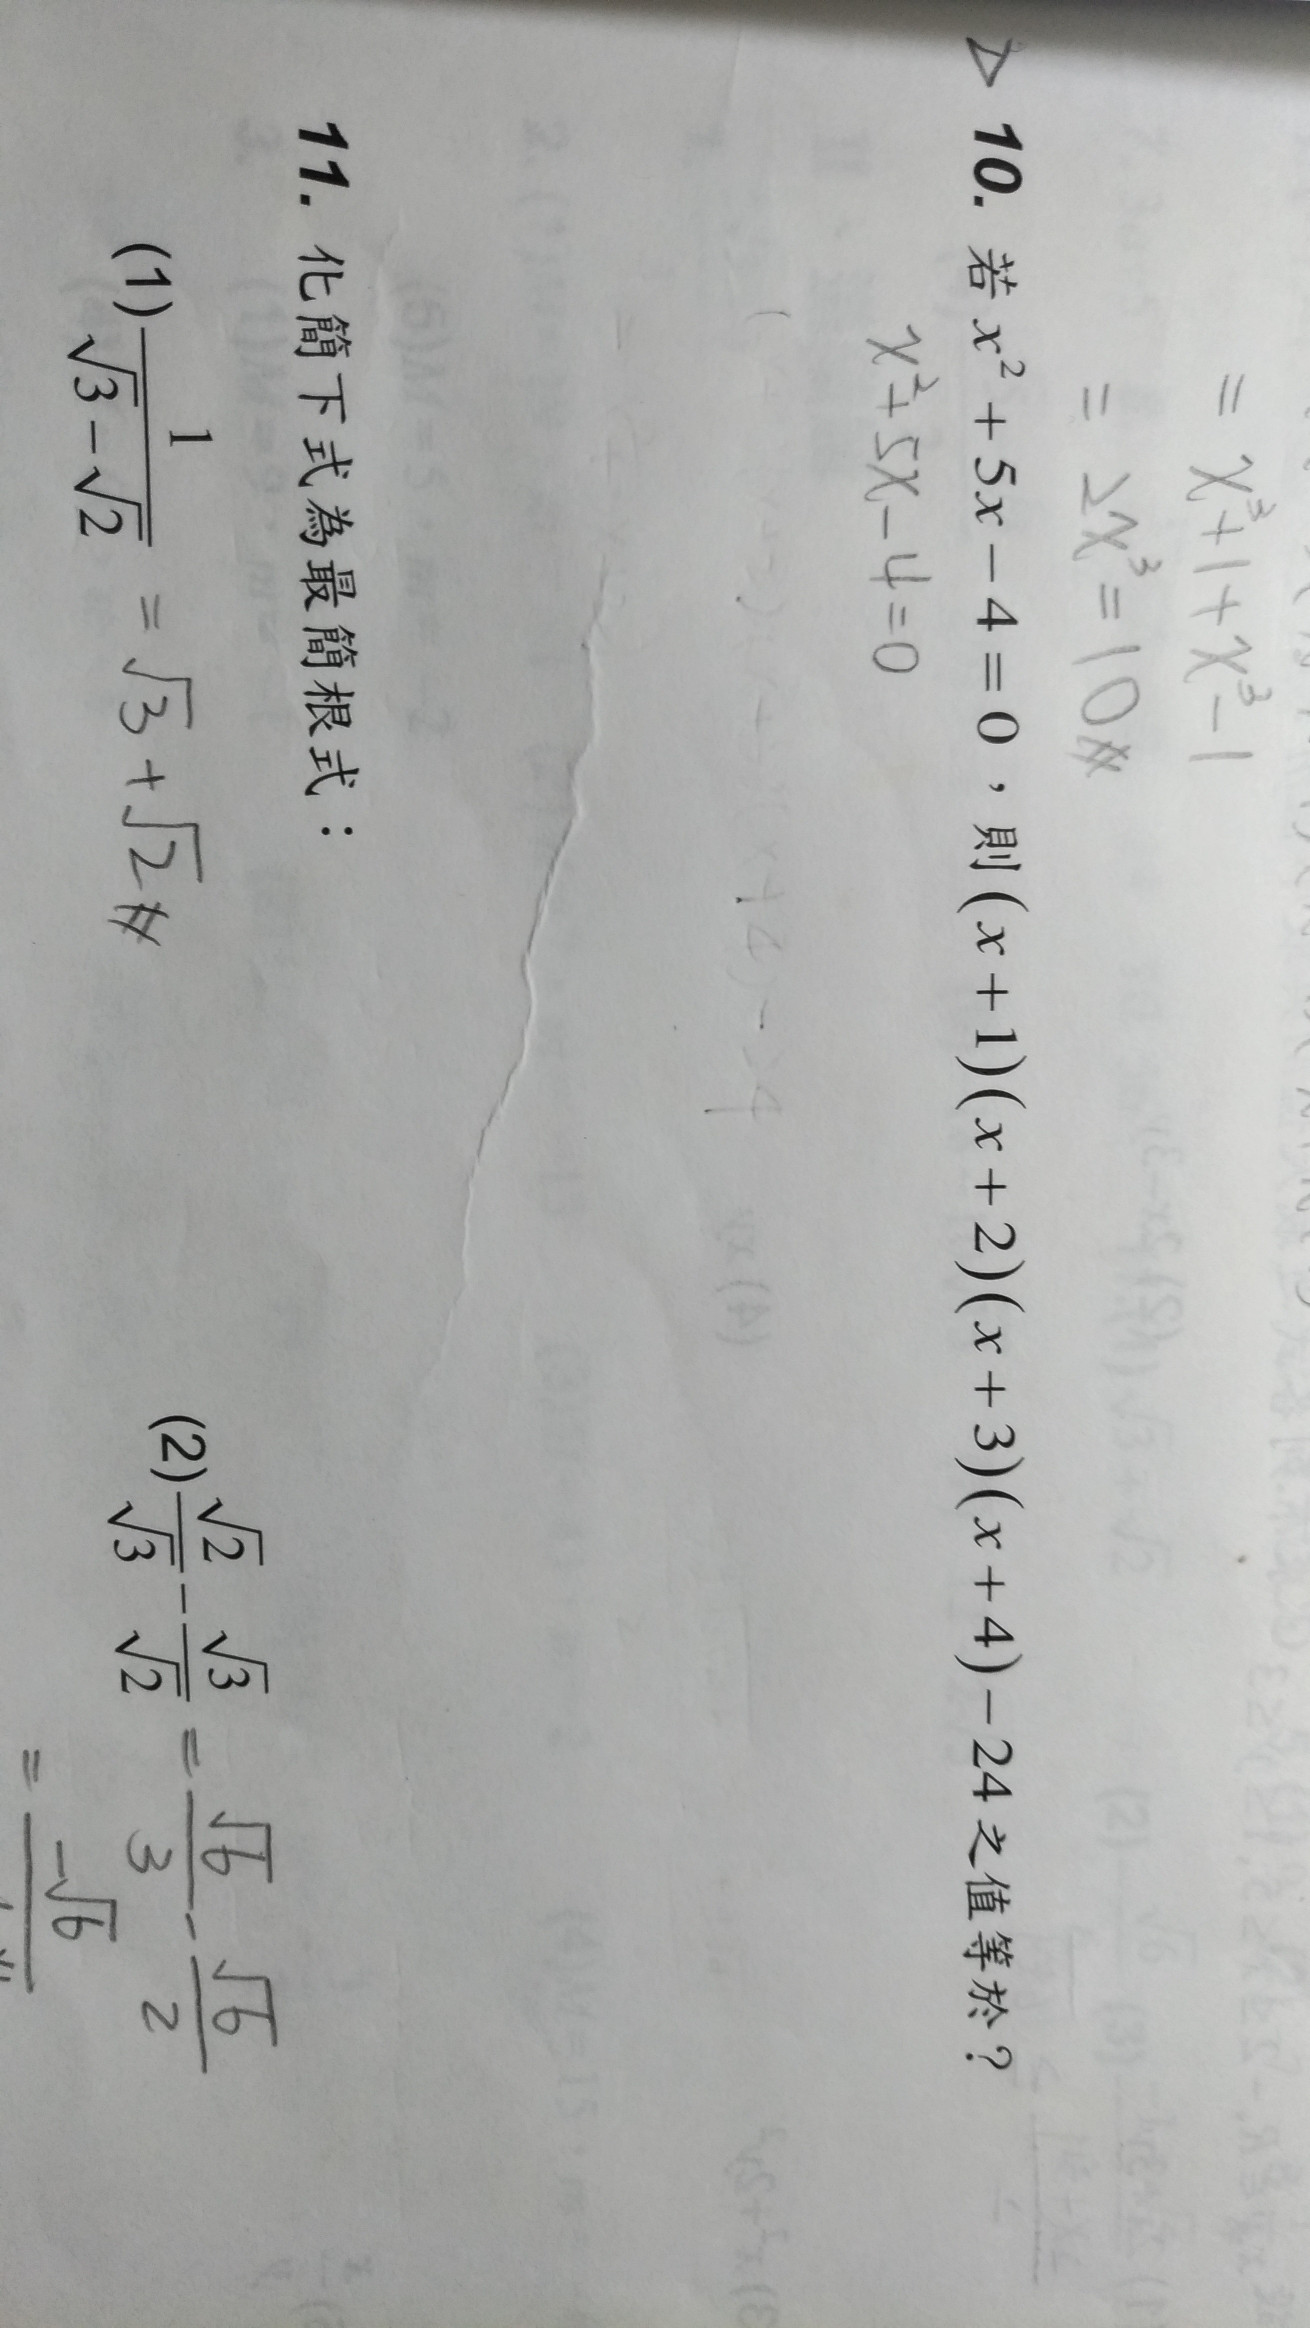 = x³+1+x³-1
= 2x³=10#
10. 若 x²+5x-4=0，則(x+1)(x+2)(x+3)(x+4)-24之值等於？
x²+5x-4=0
11. 化簡下式為最簡根式：
(1) 1/(√3-√2) = √3+√2# (2) √2/√3 - √3/√2 = √6/3 - √6/2
= -√6